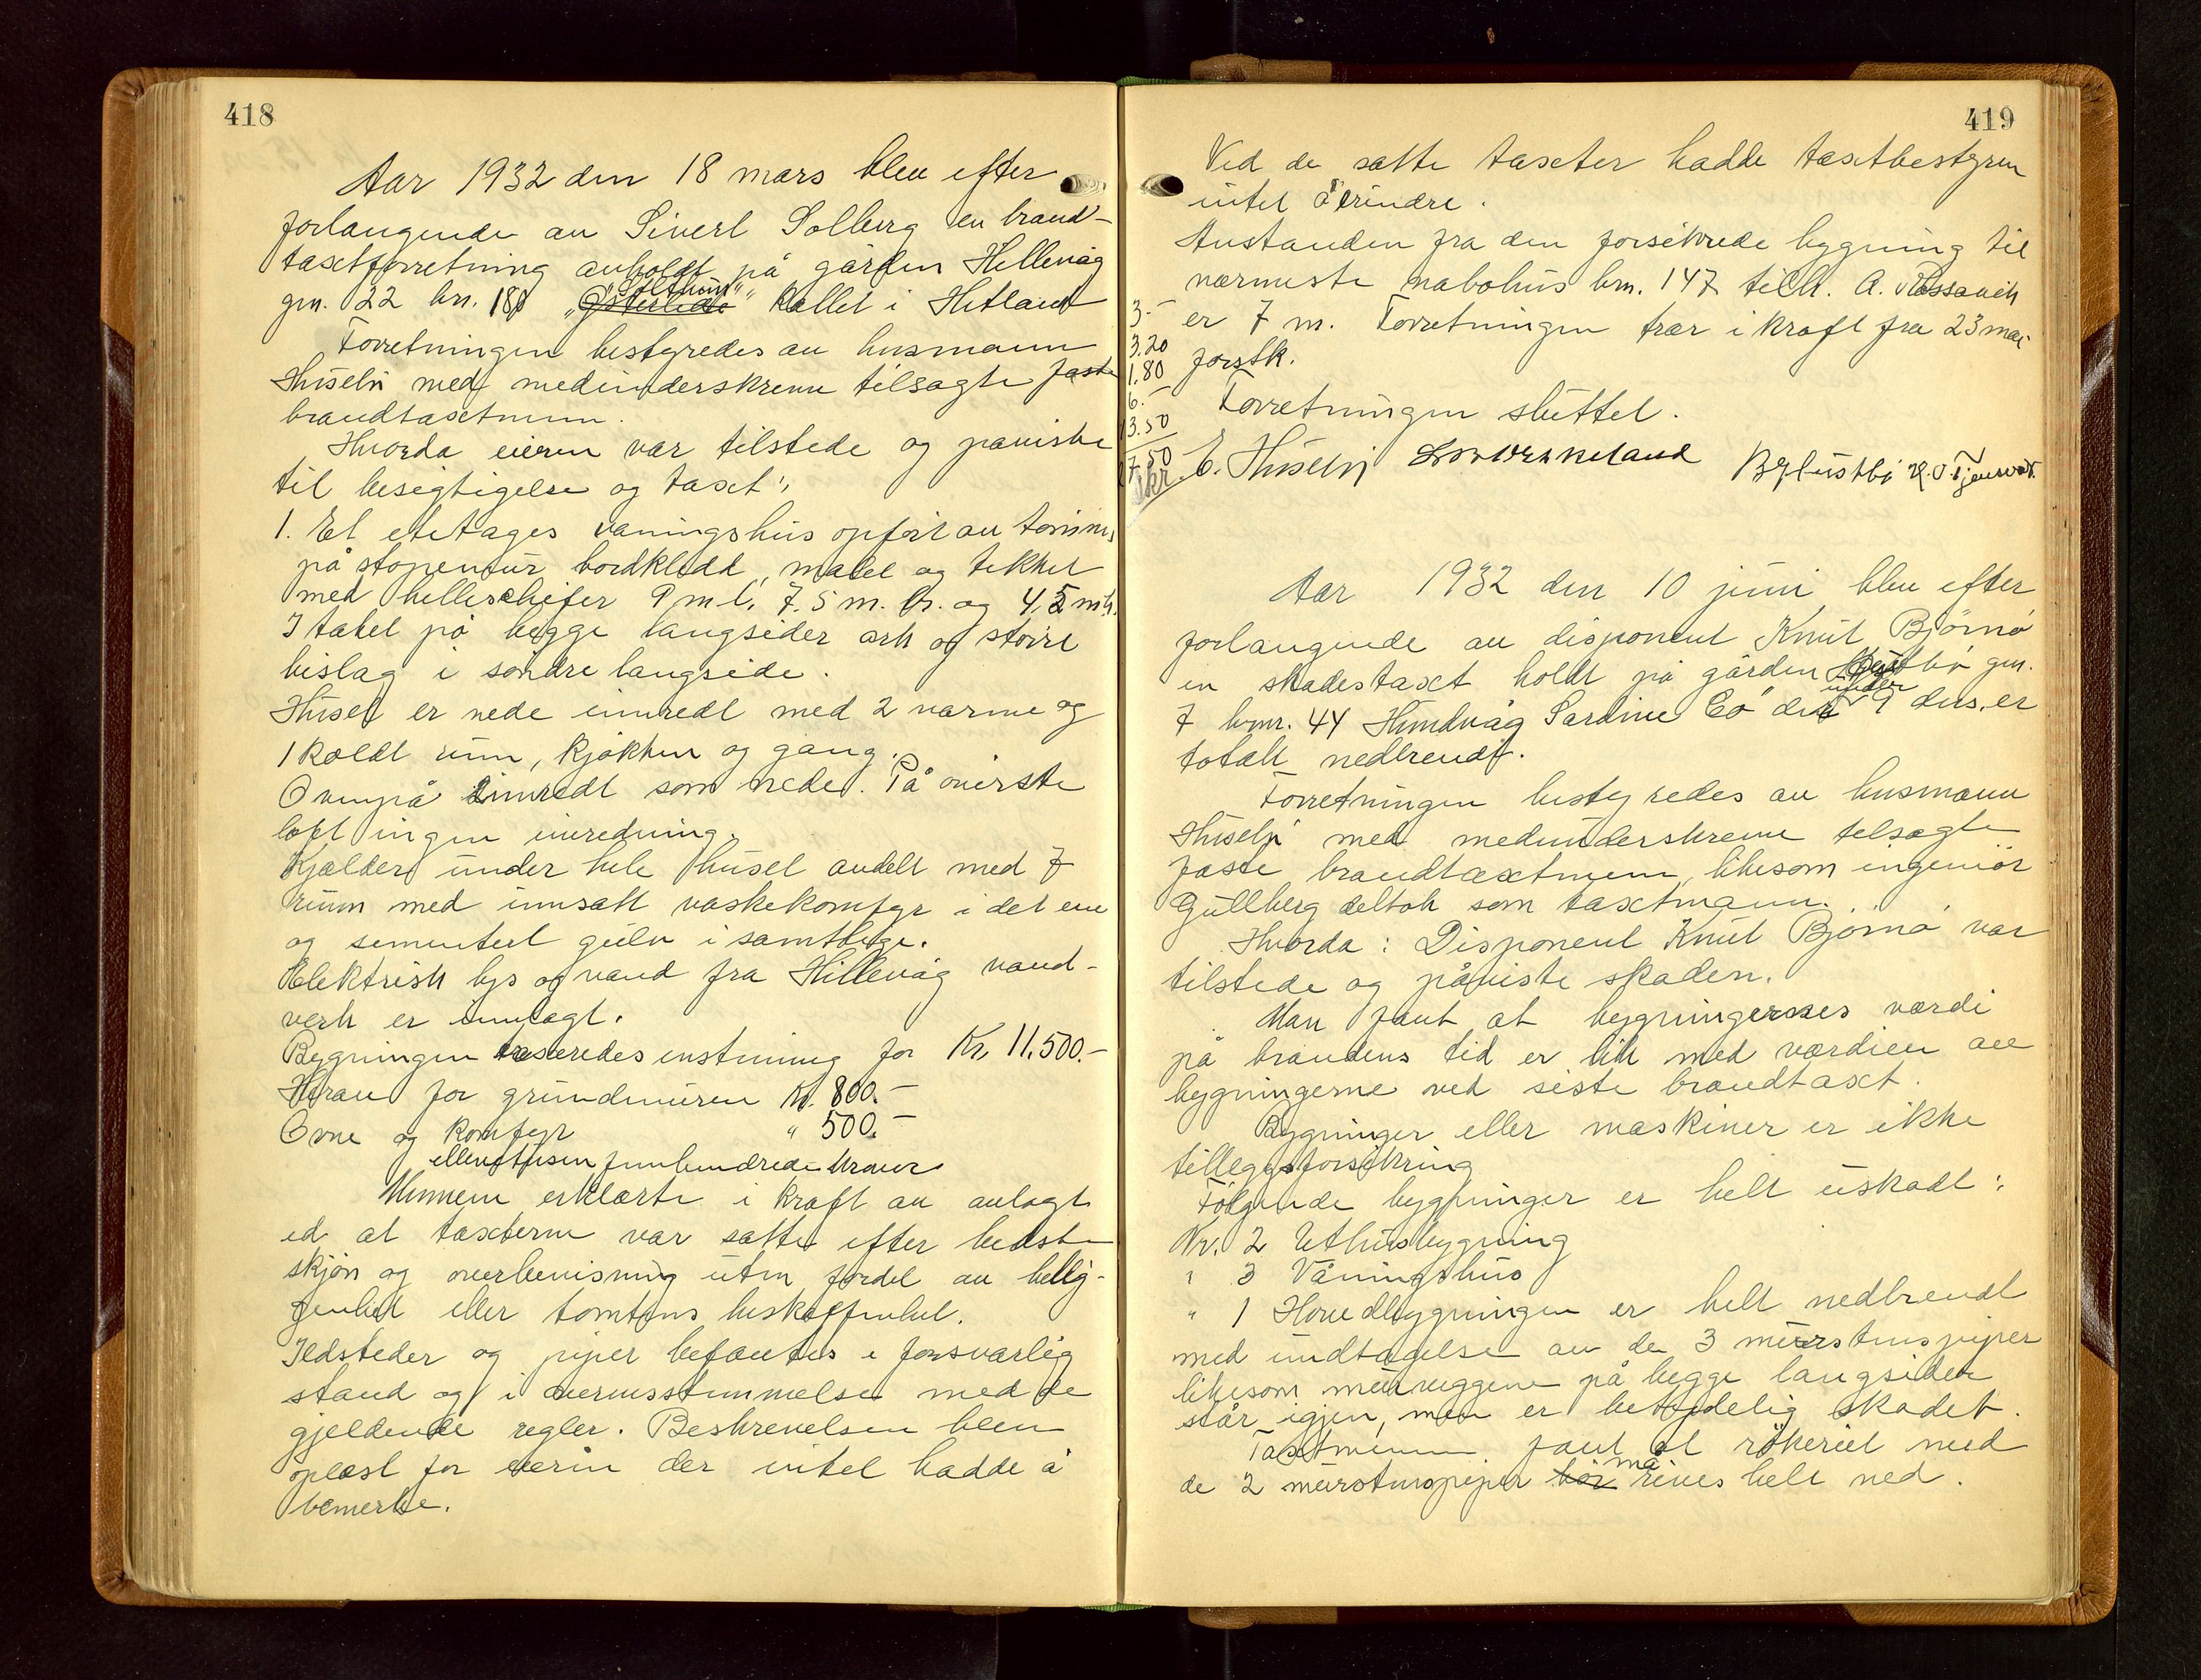 418
Aar 1932 den 18 mars blev efter
forlangende av Sivert Solberg en brand-
taxtforretning avholdt på gården Hillevåg
"Solthun"
gnr. 22 bn. 180 "Østerlide" kallet i Hetland
Forretningen bestyredes av husmann
Huseby med medunderskrevne tilsagte faste
brandtaxtmenn.
Hvorda eieren var tilstede og paaviste
til besigtigelse og taxt:
1. Et etetages våningshus opført av tømmer
på støpemur bordkledd, malet og tekket
med helleskifer 9 m l. 7.5 m. br. og 4,5 m h.
I taket på begge langsider ark og større
bislag i søndre langside.
Huset er nede innredt med 2 varme og
1 koldt rum, kjøkken og gang.
Ovenpå innredt som nede. På øverste
loft ingen innredning.
Kjelder under hele huset avdelt med 7
rum med innsatt vaskekomfyr i det ene
og sementert gulv i samtlige.
Elektrisk lys og vand fra Hillevåg vand-
verk er innlagt.
Bygningen taxeredes enstemmig for Kr. 11.500.-
Herav for grundmuren Kr. 800.-
Ovne og komfyr " 500.-
ellevetusen femhundrede kroner
Mennene erklærte i kraft av avlagt
ed at taxterne var satte efter bedste
skjøn og overbevisning uten fordel av belig-
genhet eller tomtens beskaffenhet.
Ildsteder og piper befantes i forsvarlig
stand og i overensstemmelse med de
gjeldende regler. Beskrevelsen blev
oplæst for eieren der intet hadde å
bemerke.
419
Ved de satte taxter hadde taxtbestyren
intet å erindre.
Avstanden fra den forsikrede bygning til
nærmeste nabohus bnr. 147 tilh. A. Rossavik
3.- er 7 m. Forretningen trær i kraft fra 23 mai
3.20
1.80 førstk.
6.- Forretningen sluttet.
13.50
27.50 E. Huseby Lars Verkneland B. Ryhustbø K. O. Tjensvold.
kr.
Aar 1932 den 10 juni blev efter
forlangende av disponent Knut Bjørnø
en skadestaxt holdt på gården Austbø gnr.
under
7 brnr. 44 Hundvåg Sardine Co der 9 ds. er
totalt nedbrendt.
Forretningen bestyredes av husmann
Huseby med medunderskrevne tilsagte
faste brandtaxtmenn, likesom ingeniør
Gullberg deltok som taxtmann.
Hvorda: Disponent Knut Bjørnø var
tilstede og påviste skaden.
Man fant at bygningernes værdi
på brandens tid er lik med værdien av
bygningerne ved siste brandtaxt.
Bygninger eller maskiner er ikke
tilleggsforsikring
Følgende bygninger er helt uskadt:
Nr. 2 Uthusbygning
" 3 Våningshus
" 1 Hovedbygningen er helt nedbrendt
med undtagelse av de 3 murstenspiper
likesom murveggene på begge langsider
står igjen, men er betydelig skadet.
Taxtmennene fant at røkeriet med
må
de 2 murstenspiper bør rives helt ned.